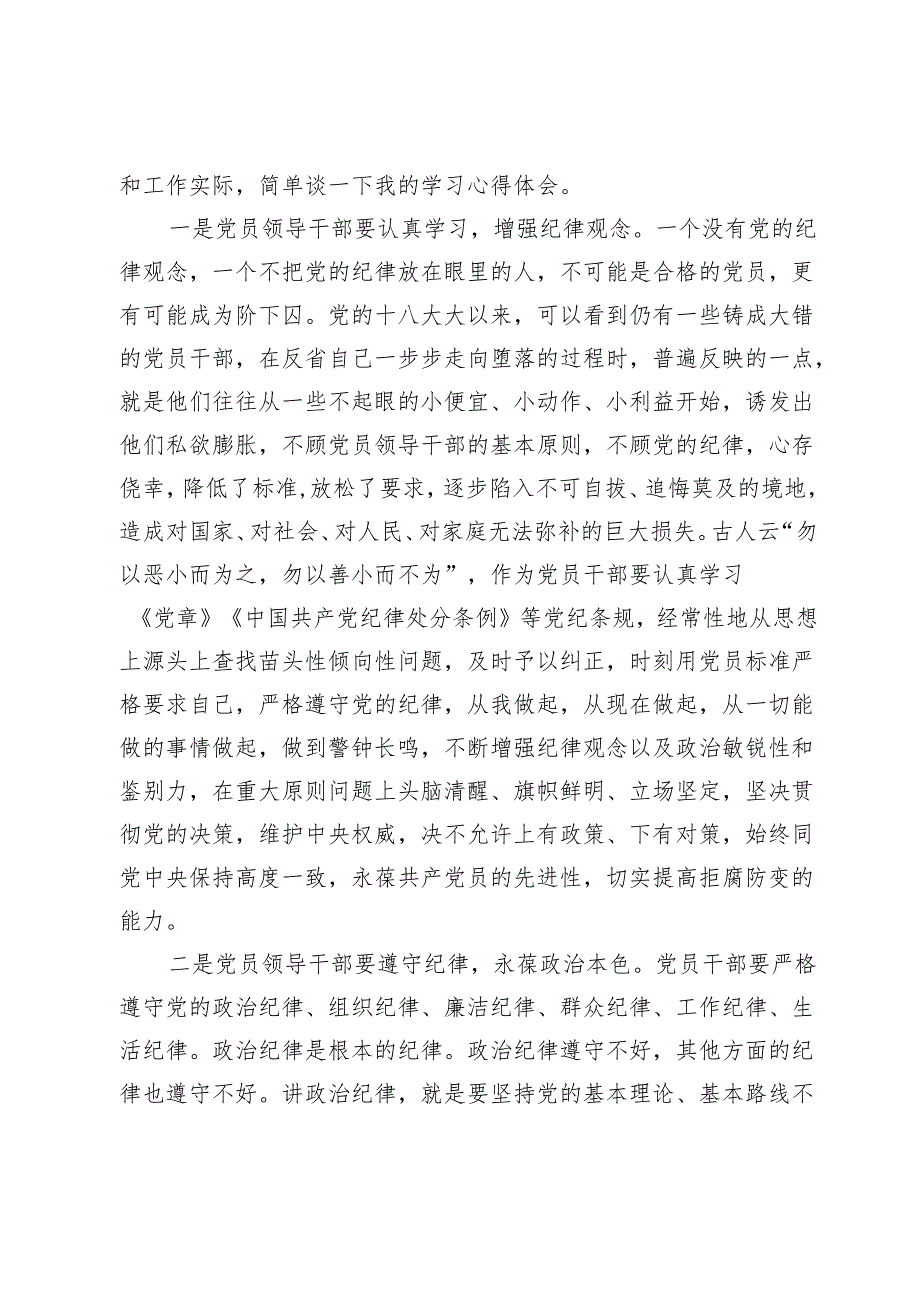 和工作实际，简单谈一下我的学习心得体会。
一是党员领导干部要认真学习，增强纪律观念。一个没有党的纪
律观念，一个不把党的纪律放在眼里的人，不可能是合格的党员，更
有可能成为阶下囚。党的十八大大以来，可以看到仍有一些铸成大错
的党员干部，在反省自己一步步走向堕落的过程时，普遍反映的一点，
就是他们往往从一些不起眼的小便宜、小动作、小利益开始，诱发出
他们私欲膨胀，不顾党员领导干部的基本原则，不顾党的纪律，心存
侥幸，降低了标准，放松了要求，逐步陷入不可自拔、追悔莫及的境地，
造成对国家、对社会、对人民、对家庭无法弥补的巨大损失。古人云“勿
以恶小而为之，勿以善小而不为”，作为党员干部要认真学习
《党章》《中国共产党纪律处分条例》等党纪条规，经常性地从思想
上源头上查找苗头性倾向性问题，及时予以纠正，时刻用党员标准严
格要求自己，严格遵守党的纪律，从我做起，从现在做起，从一切能
做的事情做起，做到警钟长鸣，不断增强纪律观念以及政治敏锐性和
鉴别力，在重大原则问题上头脑清醒、旗帜鲜明、立场坚定，坚决贯
彻党的决策，维护中央权威，决不允许上有政策、下有对策，始终同
党中央保持高度一致，永葆共产党员的先进性，切实提高拒腐防变的
能力。
二是党员领导干部要遵守纪律，永葆政治本色。党员干部要严格
遵守党的政治纪律、组织纪律、廉洁纪律、群众纪律、工作纪律、生
活纪律。政治纪律是根本的纪律。政治纪律遵守不好，其他方面的纪
律也遵守不好。讲政治纪律，就是要坚持党的基本理论、基本路线不